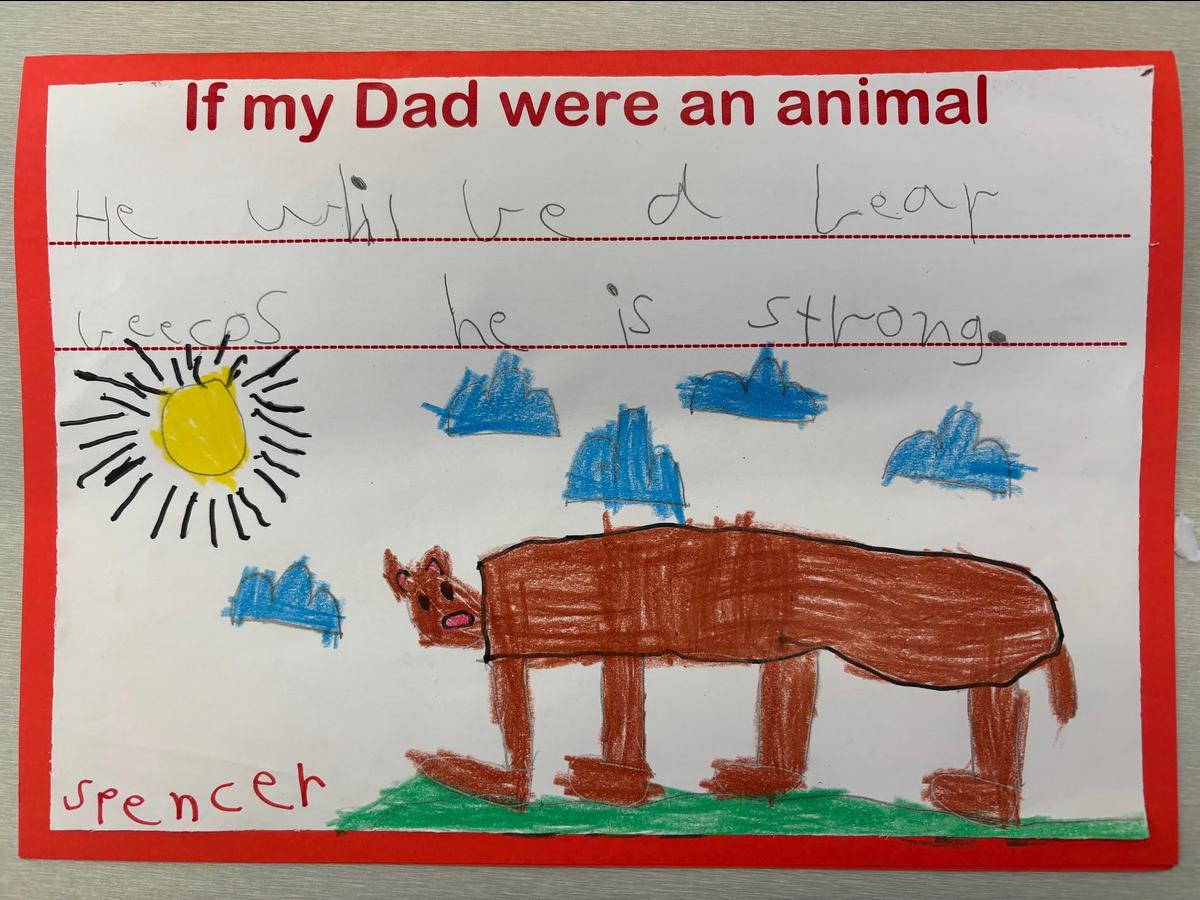 If my Dad were an animal
He whil be a bear
beecos he is strong.
spencer